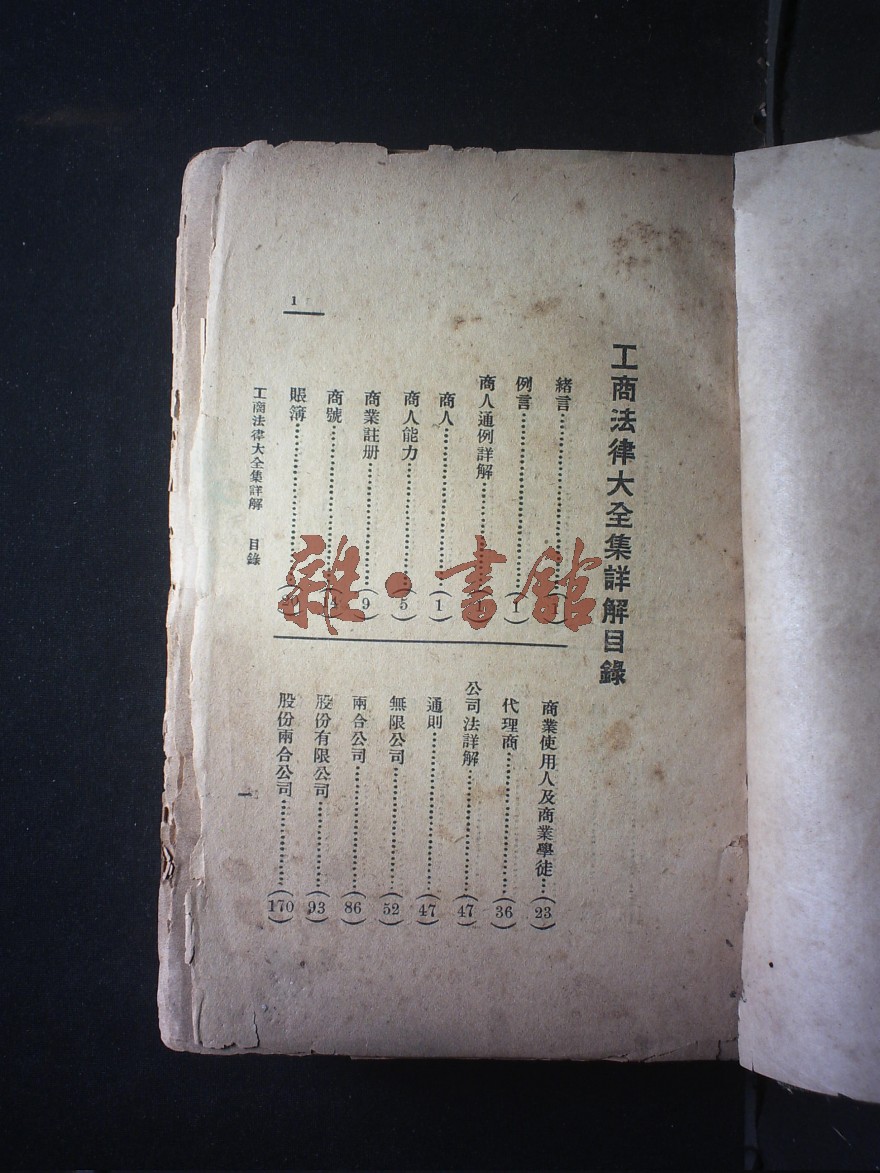 工商法律大全集詳解目錄
緒言……(1)
例言……(1)
商人通例詳解……(1)
商人……(1)
商人能力……(5)
商業註册……(9)
商號……(14)
賬簿……(20)
商業使用人及商業學徒……(23)
代理商……(36)
公司法詳解……(47)
通則……(47)
無限公司……(52)
兩合公司……(86)
股份有限公司……(93)
股份兩合公司……(170)
工商法律大全集詳解 目錄
一
1
雜·書館